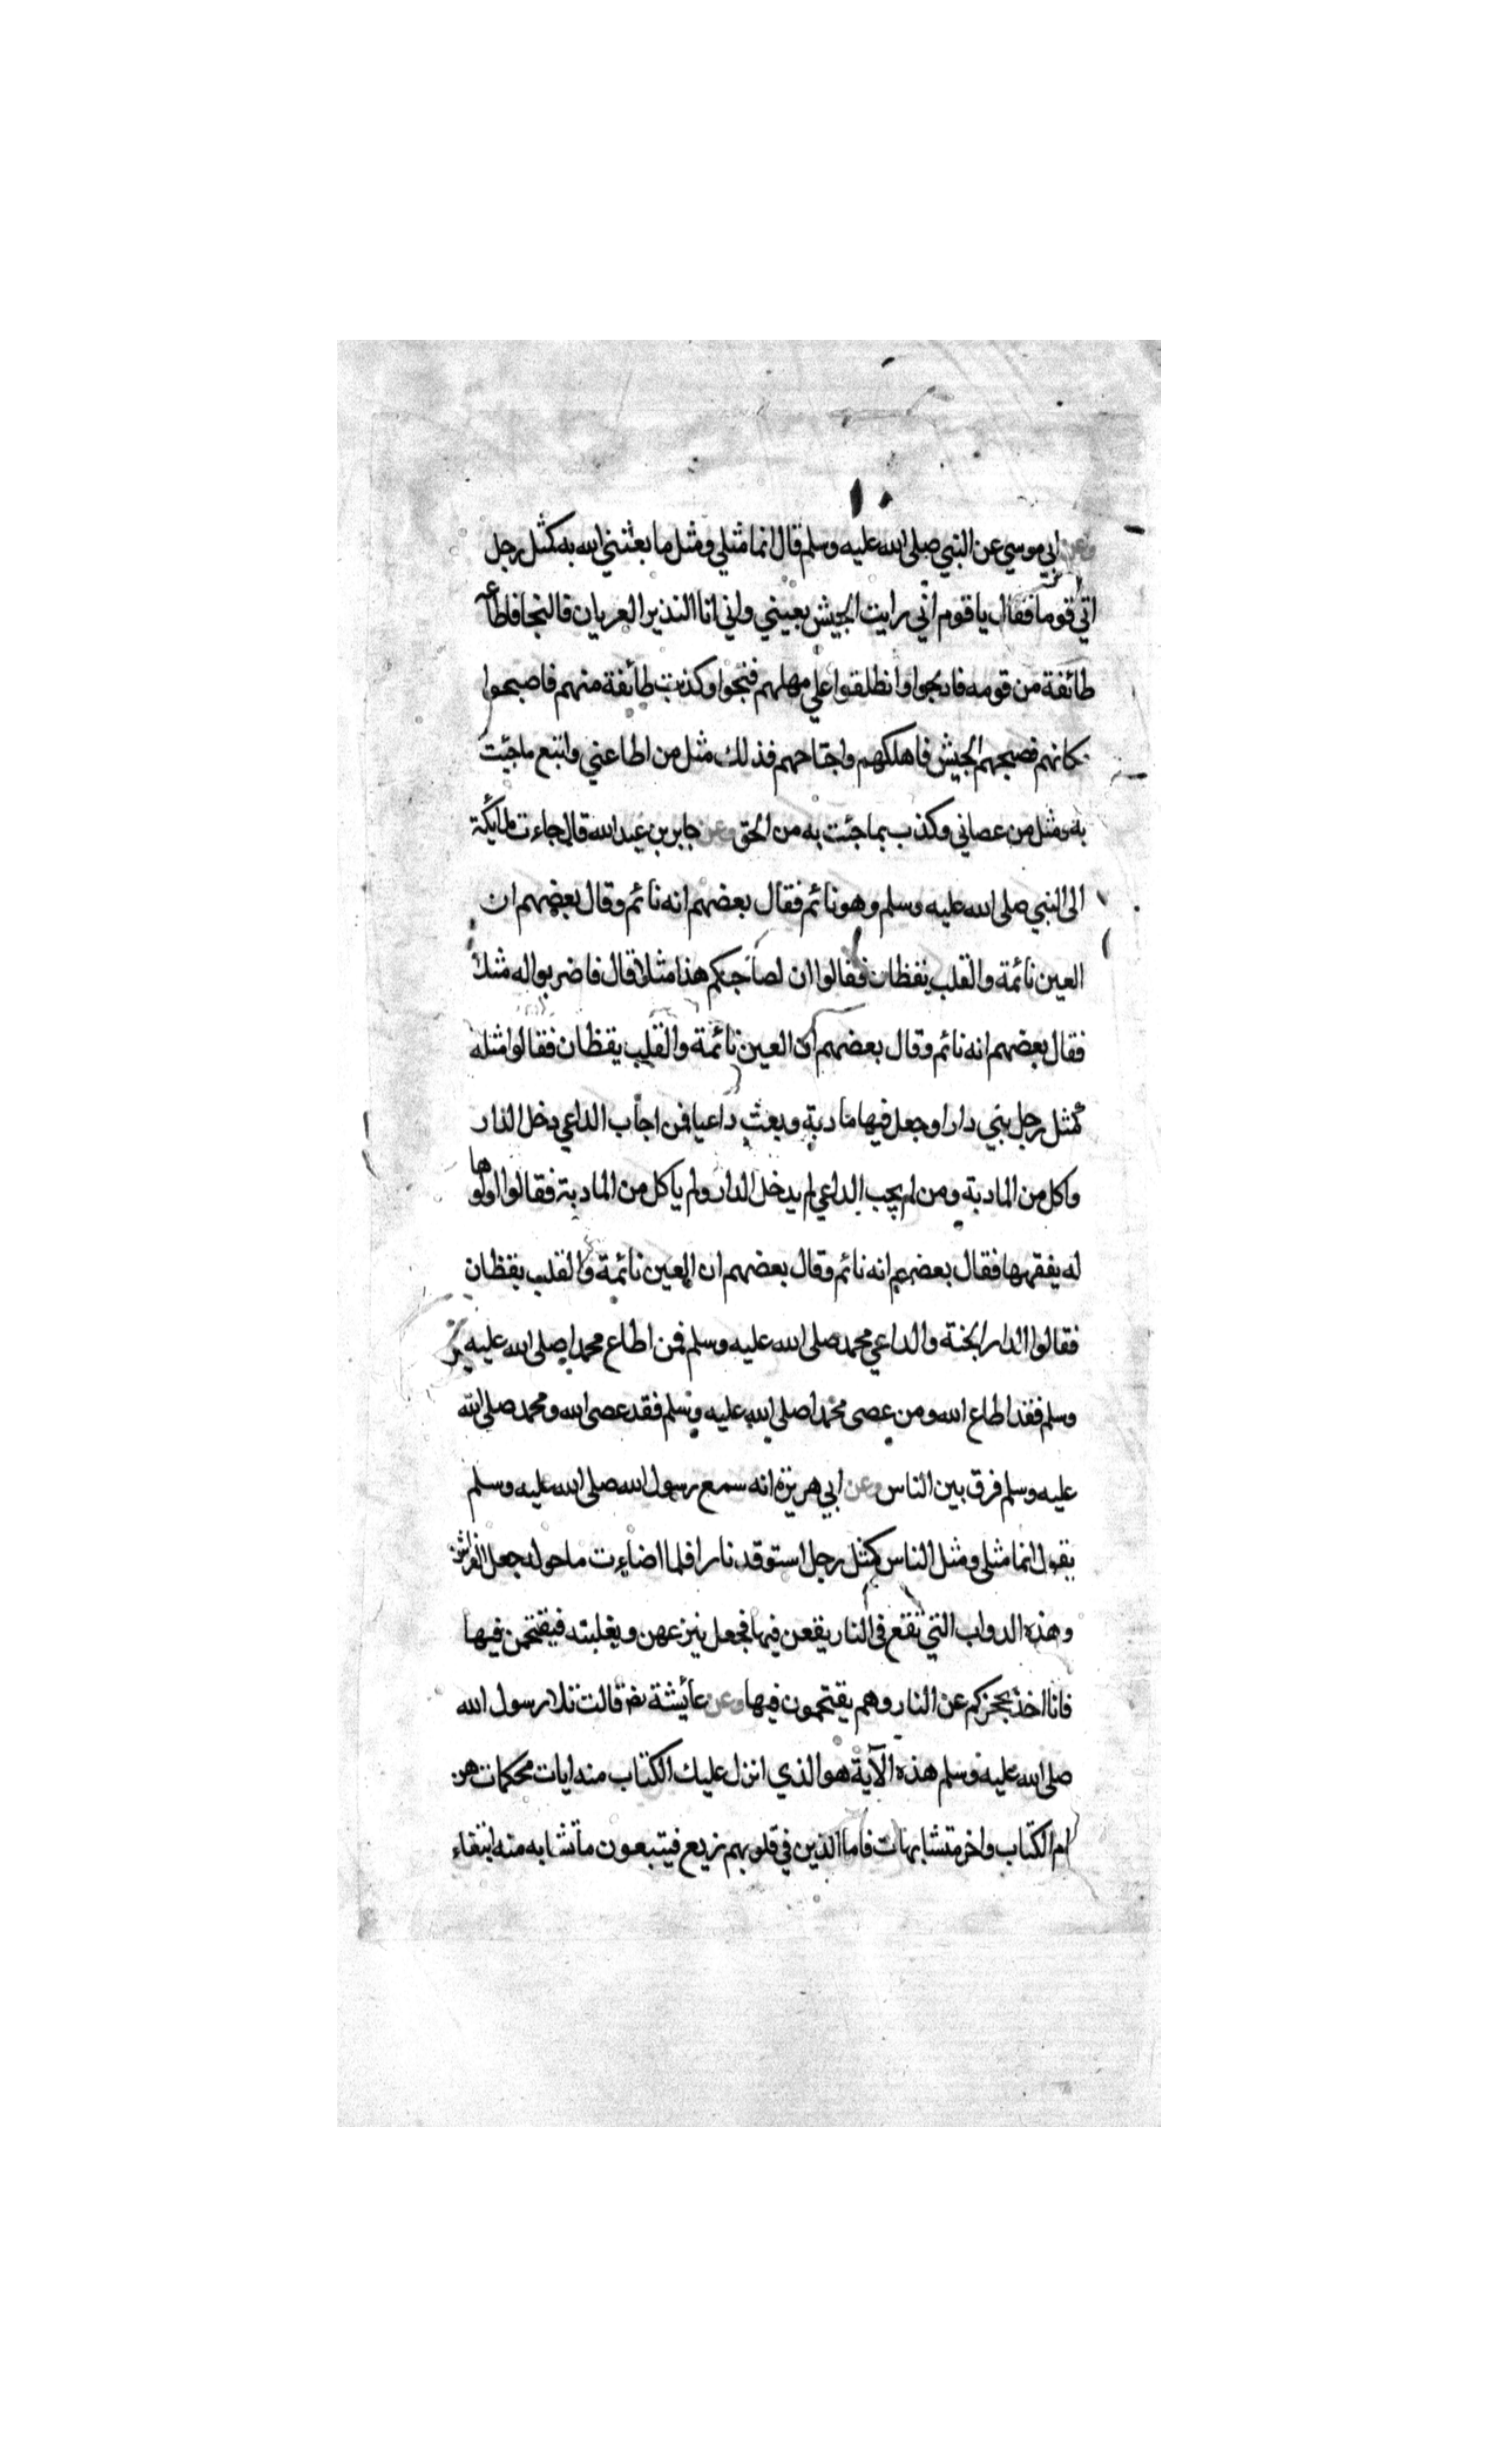 وعن ابي موسي عن النبي صلى الله عليه وسلم قال انما مثلي ومثل ما بعثني الله به كمثل رجل
اتي قوما فقال يا قوم اني رايت الجيش بعيني واني انا النذير العريان فالنجا فاطاعه
طائفة من قومه فادلجوا وانطلقوا علي مهلهم فنجوا وكذبت طائفة منهم فاصبحوا
مكانهم فصبحهم الجيش فاهلكهم واجتاحهم فذلك مثل من اطاعني واتبع ما جئت
به ومثل من عصاني وكذب بما جئت به من الحق وعن جابر بن عبد الله قال جاءت ملائكة
الى النبي صلى الله عليه وسلم وهو نائم فقال بعضهم انه نائم وقال بعضهم ان
العين نائمة والقلب يقظان فقالوا ان لصاحبكم هذا مثلا قال فاضربوا له مثلا
فقال بعضهم انه نائم وقال بعضهم ان العين نائمة والقلب يقظان فقالوا مثله
كمثل رجل بني دارا وجعل فيها مادبة وبعث داعيا فمن اجاب الداعي دخل الدار
واكل من المادبة ومن لم يجب الداعي لم يدخل الدار ولم ياكل من المادبة فقالوا اولوها
له يفقهها فقال بعضهم انه نائم وقال بعضهم ان العين نائمة والقلب يقظان
فقالوا الدار الجنة والداعي محمد صلى الله عليه وسلم فمن اطاع محمدا صلى الله عليه
وسلم فقد اطاع الله ومن عصى محمدا صلى الله عليه وسلم فقد عصى الله ومحمد صلى الله
عليه وسلم فرق بين الناس وعن ابي هريرة انه سمع رسول الله صلى الله عليه وسلم
يقول انما مثلى ومثل الناس كمثل رجل استوقد نارا فلما اضاءت ما حوله جعل الفراش
وهذه الدواب التي تقع في النار يقعن فيها فجعل ينزعهن ويغلبنه فيقتحمن فيها
فانا اخذ بحجزكم عن النار وهم يقتحمون فيها وعن عائشة رضه قالت تلا رسول الله
صلى الله عليه وسلم هذه الآية هو الذي انزل عليك الكتاب منه ايات محكمات هن
ام الكتاب واخر متشابهات فاما الذين في قلوبهم زيغ فيتبعون ما تشابه منه ابتغاء